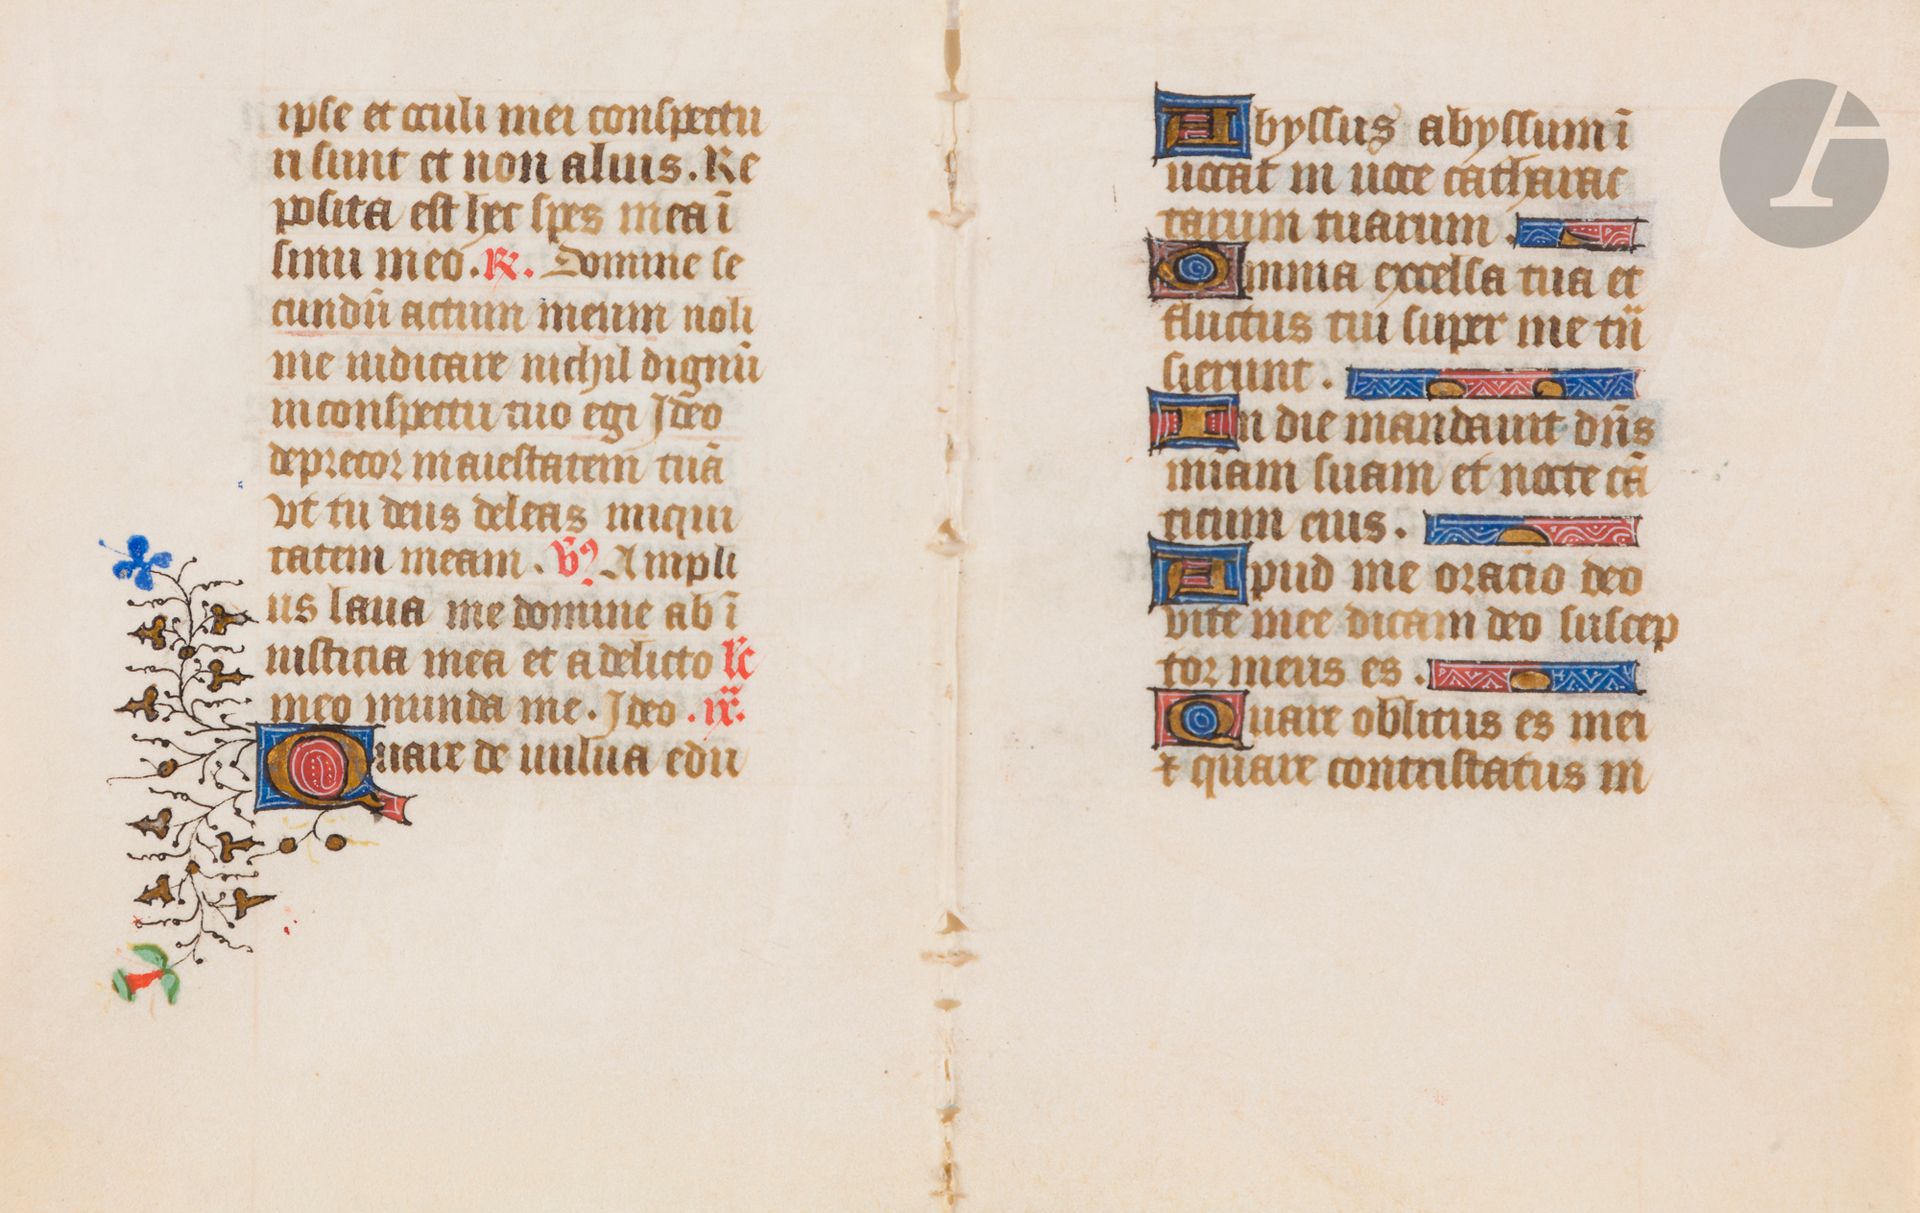 ipse et oculi mei conspectu
ri sunt et non alius. Re
posita est hec spes mea ī
sinu meo. R. Domine se
cundū actum meum noli
me iudicare nichil dignū
in conspectu tuo egi Ideo
deprecor maiestatem tuā
vt tu deus deleas iniqui
tatem meam. Vꝰ Ampli
us laua me domine ab ī
iusticia mea et a delicto lc̄
meo munda me. Ideo. .ix.
Quare de uulua edu
Abyssus abyssum ī
uocat in uoce catharac
tarum tuarum.
Omnia excelsa tua et
fluctus tui super me trā
sierunt.
In die mandauit dn̄s
miam suam et nocte cā
ticum eius.
Apud me oracio deo
vite mee dicam deo suscep
tor meus es.
Quare oblitus es mei
⁊ quare contristatus in